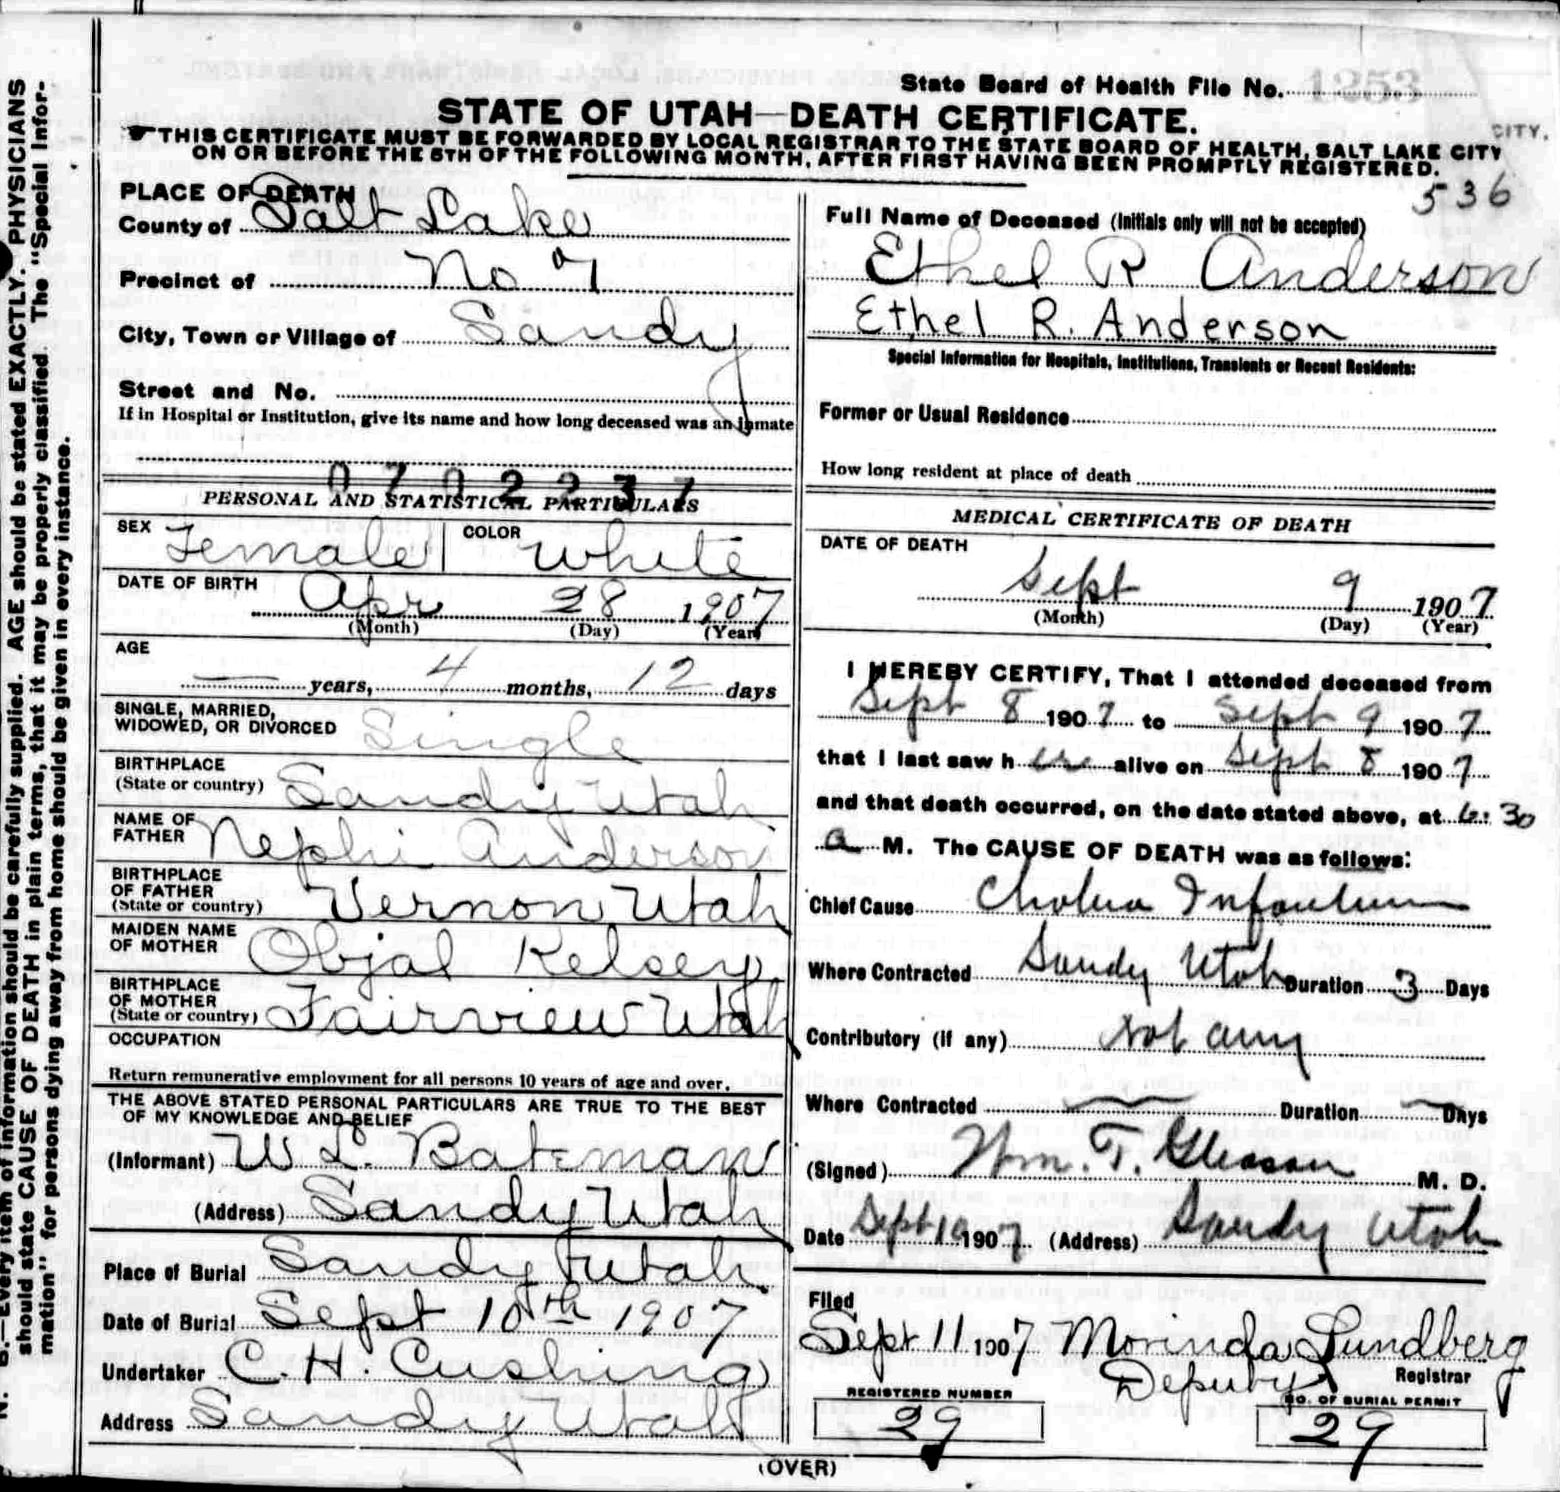 N. B.—Every item of information should be carefully supplied. AGE should be stated EXACTLY. PHYSICIANS
should state CAUSE OF DEATH in plain terms, that it may be properly classified. The "Special Infor-
mation" for persons dying away from home should be given in every instance.
State Board of Health File No. 1253
STATE OF UTAH—DEATH CERTIFICATE.
THIS CERTIFICATE MUST BE FORWARDED BY LOCAL REGISTRAR TO THE STATE BOARD OF HEALTH, SALT LAKE CITY CITY,
ON OR BEFORE THE 5TH OF THE FOLLOWING MONTH, AFTER FIRST HAVING BEEN PROMPTLY REGISTERED.
536
PLACE OF DEATH
County of Salt Lake
Precinct of No 7
City, Town or Village of Sandy
Street and No.
If in Hospital or Institution, give its name and how long deceased was an inmate
0702237
PERSONAL AND STATISTICAL PARTICULARS
SEX Female COLOR White
DATE OF BIRTH Apr 28 1907
(Month) (Day) (Year)
AGE
— years, 4 months, 12 days
SINGLE, MARRIED,
WIDOWED, OR DIVORCED Single
BIRTHPLACE
(State or country) Sandy Utah
NAME OF
FATHER Nephi Anderson
BIRTHPLACE
OF FATHER
(State or country) Vernon Utah
MAIDEN NAME
OF MOTHER Objal Kelsey
BIRTHPLACE
OF MOTHER
(State or country) Fairview Utah
OCCUPATION
Return remunerative employment for all persons 10 years of age and over.
THE ABOVE STATED PERSONAL PARTICULARS ARE TRUE TO THE BEST
OF MY KNOWLEDGE AND BELIEF
(Informant) W L. Bateman
(Address) Sandy Utah
Place of Burial Sandy Utah
Date of Burial Sept 10th 1907
Undertaker C. H. Cushing
Address Sandy Utah
Full Name of Deceased (Initials only will not be accepted)
Ethel R Anderson
Ethel R. Anderson
Special Information for Hospitals, Institutions, Transients or Recent Residents:
Former or Usual Residence
How long resident at place of death
MEDICAL CERTIFICATE OF DEATH
DATE OF DEATH
Sept 9 1907
(Month) (Day) (Year)
I HEREBY CERTIFY, That I attended deceased from
Sept 8 1907 to Sept 9 1907
that I last saw h er alive on Sept 8 1907
and that death occurred, on the date stated above, at 6:30
a M. The CAUSE OF DEATH was as follows:
Chief Cause Cholera Infantum
Where Contracted Sandy Utah Duration 3 Days
Contributory (if any) Not any
Where Contracted — Duration — Days
(Signed) Wm. T. Gleason M. D.
Date Sept 10 1907 (Address) Sandy Utah
Filed
Sept 11 1907 Morinda Lundberg
Deputy Registrar
REGISTERED NUMBER NO. OF BURIAL PERMIT
29 29
(OVER)